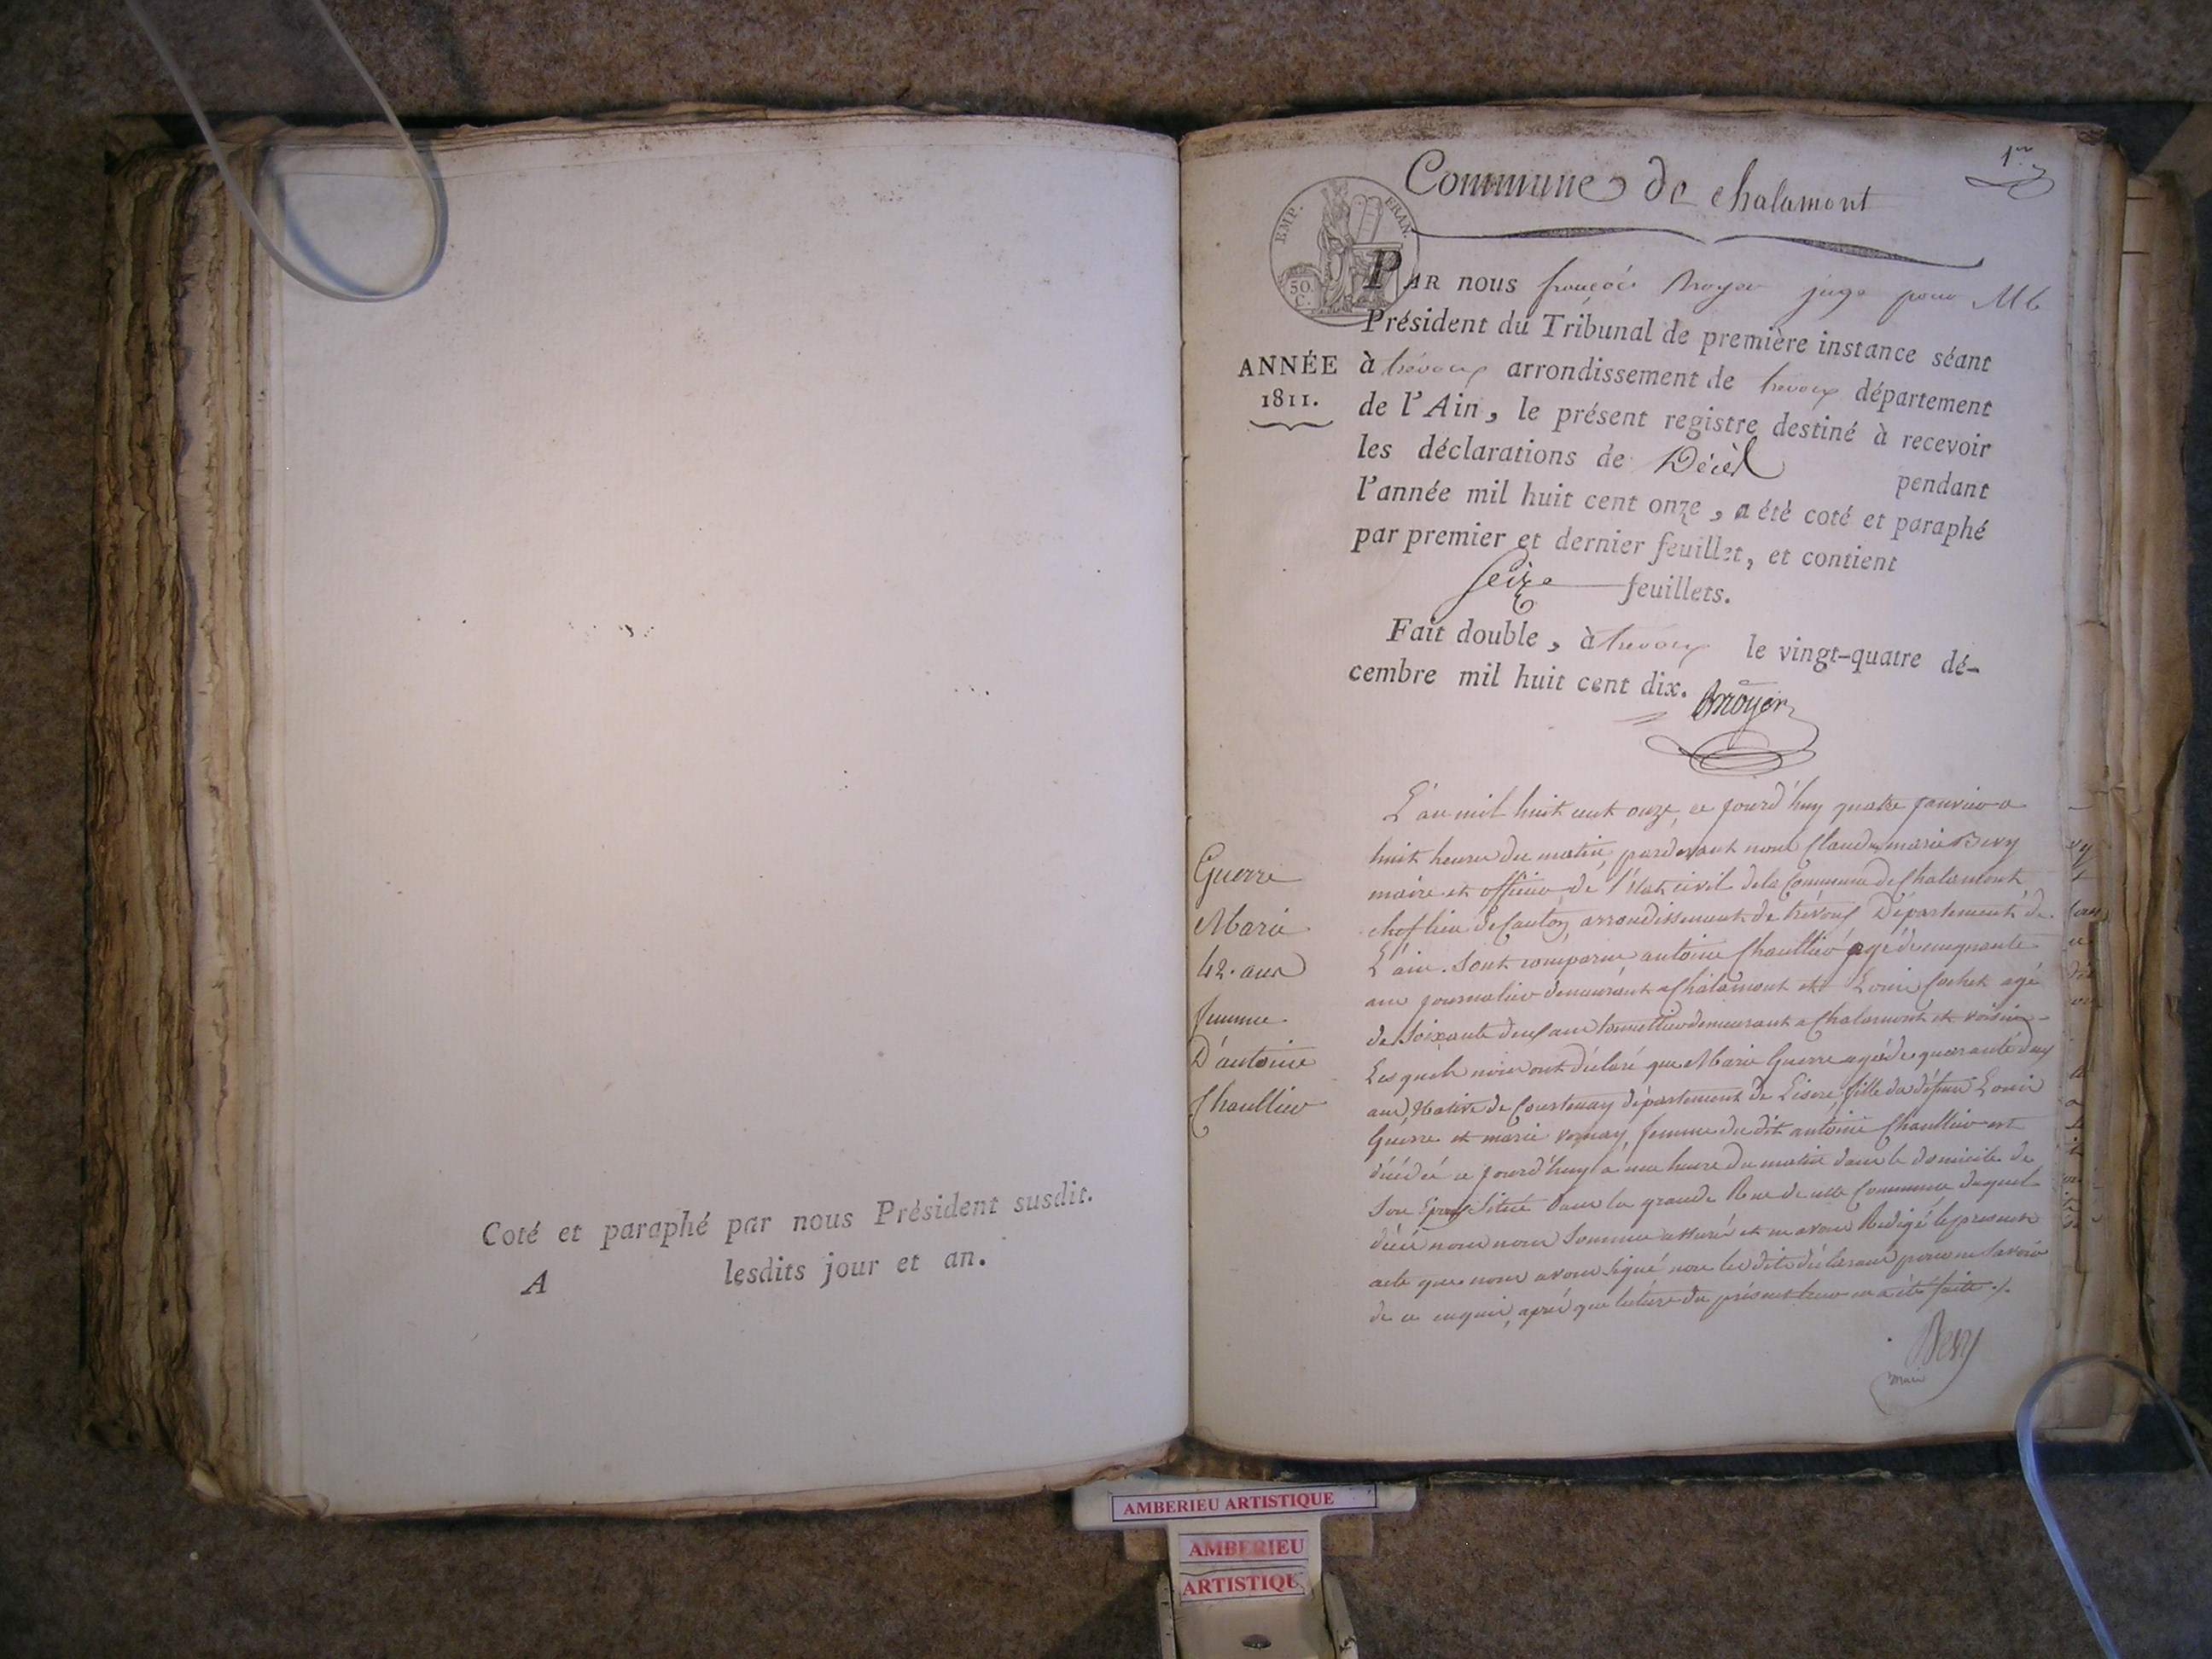 Coté et paraphé par nous Président susdit.
A lesdits jour et an.
1er
Commune de chalamont
EMP. FRAN.
50.
C.
PAR nous françois juge pour Mr
Président du Tribunal de première instance séant
ANNÉE
1811.
à trévoux arrondissement de trevoux département
de l'Ain, le présent registre destiné à recevoir
les déclarations de Décès pendant
l'année mil huit cent onze, a été coté et paraphé
par premier et dernier feuillet, et contient
Seize feuillets.
Fait double, à trevoux le vingt-quatre dé-
cembre mil huit cent dix.
Guerre
Marie
42. ans
femme
D'antoine
Chaullier
L'an mil huit cent onze, ce jourd'huy quatre janvier a
huit heures du matin, pardevant nous Claude marie Bevy
maire et officier de l'état civil de la Commune de Chalamont
chef lieu de Canton, arrondissement de trévoux Département de
L'ain. Sont comparus antoine Chaullier agé de cinquante
ans journalier demeurant a Chalamont et Louis Cochet agé
de Soixante deux ans demeurant a Chalamont et voisin
Lesquels nous ont déclaré que Marie Guerre agée de quarante deux
ans, Native de Courtenay département de Lisere, fille du défunt Louis
Guerre et marie vernay, femme du dit antoine Chaullier est
décédée ce jourd'huy a une heure du matin dans le domicile de
Son Epoux Situé dans la grande Rue de cette Commune duquel
décès nous nous Sommes assuré et en avons Redigé le present
acte que nous avons signé non les dits déclarans pour ne Savoir
de ce enquis, après que lecture du présent leur en a été faite ./.
Bevy
maire
AMBERIEU ARTISTIQUE
AMBERIEU
ARTISTIQUE